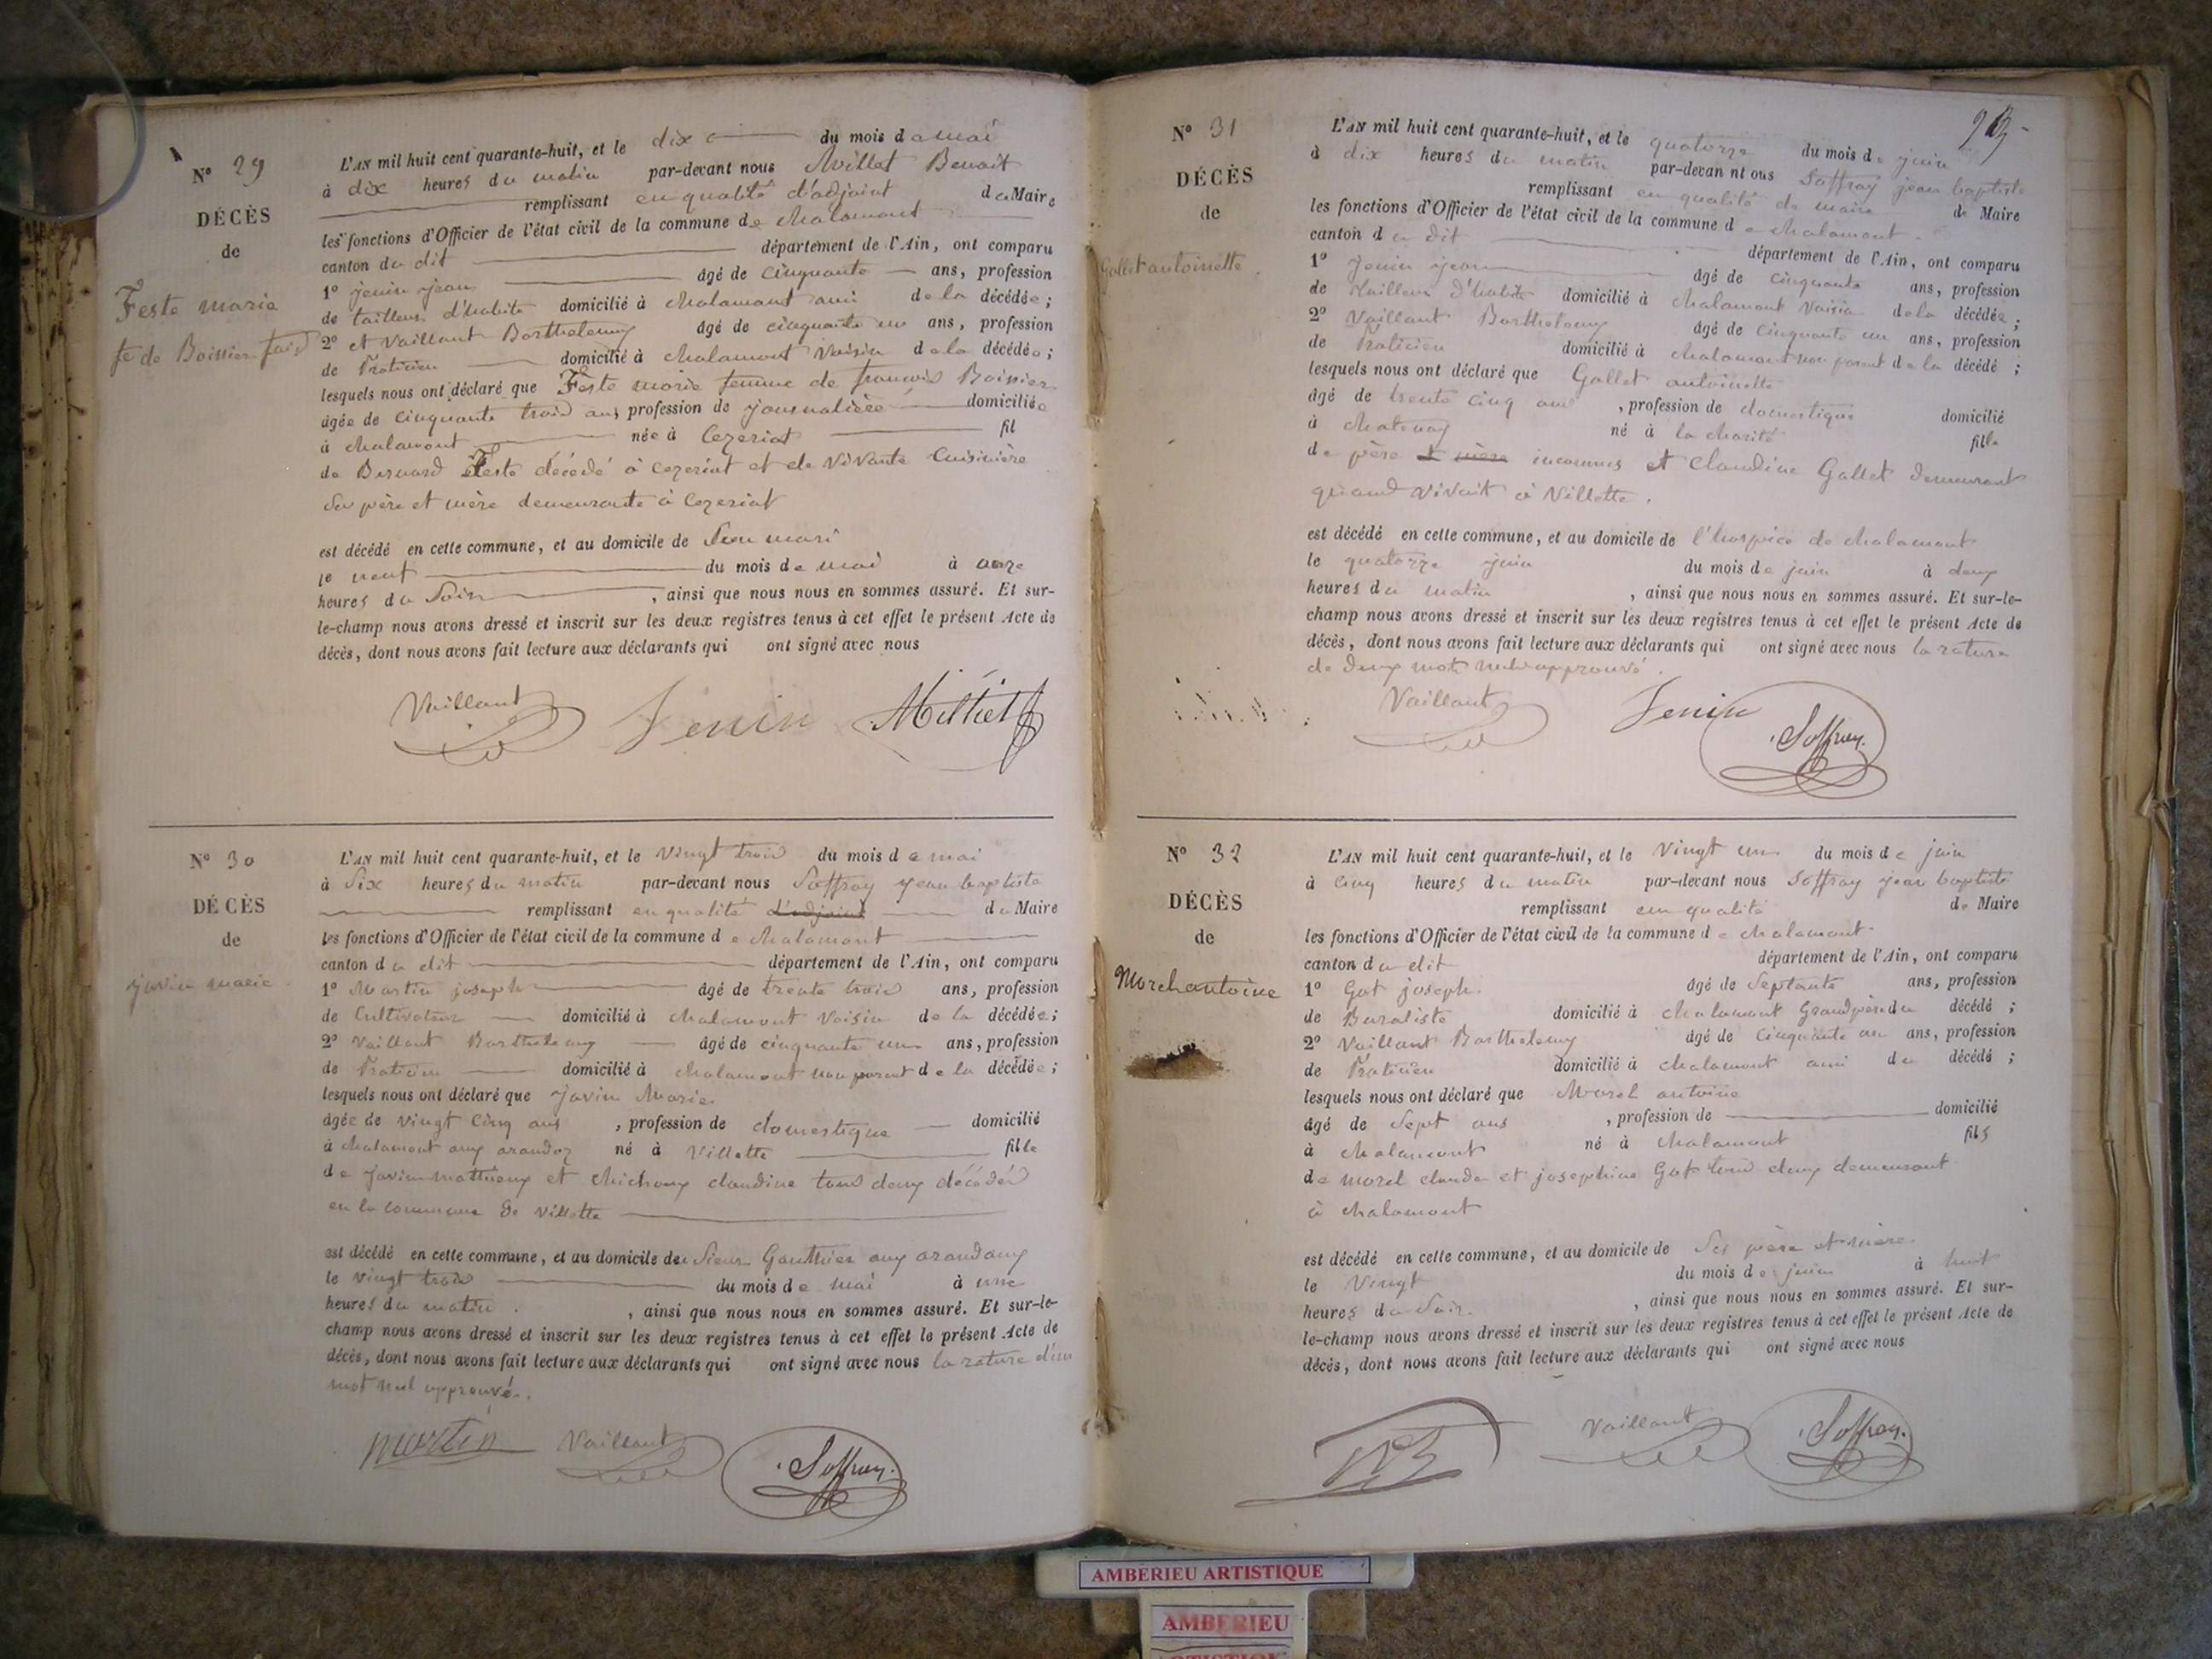 N° 29
DÉCÈS
de
Feste marie
fe de Boissier
L'AN mil huit cent quarante-huit, et le dix du mois de mai
à dix heures du matin par-devant nous Milliet Benoit
remplissant en qualité d'adjoint de Maire
les fonctions d'Officier de l'état civil de la commune de chalamont
canton du dit département de l'Ain, ont comparu
1° jenin jean âgé de cinquante ans, profession
de tailleur d'habits domicilié à chalamont ami de la décédée ;
2° et Vaillant Barthelemy âgé de cinquante un ans, profession
de Praticien domicilié à chalamont Voisin de la décédée ;
lesquels nous ont déclaré que Feste marie femme de francois Boissier
âgée de cinquante trois ans, profession de journalière domiciliée
à chalamont née à Ceyzeriat fil
de Bernard Feste décédé à ceyzeriat et de Vivante Cuisinière
ses père et mère demeurante à Ceyzeriat
est décédé en cette commune, et au domicile de Son mari
le neuf du mois de mai à onze
heures du Soir , ainsi que nous nous en sommes assuré. Et sur-
le-champ nous avons dressé et inscrit sur les deux registres tenus à cet effet le présent Acte de
décès, dont nous avons fait lecture aux déclarants qui ont signé avec nous
Vaillant Jenin Milliet
N° 30
DÉCÈS
de
javin marie
L'AN mil huit cent quarante-huit, et le Vingt trois du mois de mai
à Six heures du matin par-devant nous Soffray jean baptiste
remplissant en qualité d'adjoint de Maire
les fonctions d'Officier de l'état civil de la commune de chalamont
canton du dit département de l'Ain, ont comparu
1° Martin joseph âgé de trente trois ans, profession
de Cultivateur domicilié à chalamont Voisin de la décédée ;
2° Vaillant Barthelemy âgé de cinquante un ans, profession
de Praticien domicilié à chalamont non parent de la décédée ;
lesquels nous ont déclaré que javin Marie
âgée de vingt cinq ans , profession de domestique domicilié
à chalamont aux né à Villette fille
de javin mathieux et Michoux claudine tous deux décédés
en la commune de Villette
est décédé en cette commune, et au domicile de Sieur Gauthier aux
le vingt trois du mois de mai à une
heures du matin . , ainsi que nous nous en sommes assuré. Et sur-le-
champ nous avons dressé et inscrit sur les deux registres tenus à cet effet le présent Acte de
décès, dont nous avons fait lecture aux déclarants qui ont signé avec nous la rature d'un
mot nul approuvé.
martin Vaillant Soffray.
N° 31
DÉCÈS
de
Gallet antoinette
L'AN mil huit cent quarante-huit, et le quatorze du mois de juin
à dix heures du matin par-devan nt ous Soffray jean baptiste
remplissant en qualité de maire de Maire
les fonctions d'Officier de l'état civil de la commune de chalamont
canton du dit département de l'Ain, ont comparu
1° Jenin jean âgé de cinquante ans, profession
de tailleur d'habits domicilié à chalamont Voisin de la décédée ;
2° Vaillant Barthelemy âgé de cinquante un ans, profession
de Praticien domicilié à chalamont non parent de la décédé ;
lesquels nous ont déclaré que Gallet antoinette
âgé de trente cinq ans , profession de domestique domicilié
à chatenay né à la charité fille
de père et mère inconnus et Claudine Gallet demeurant
quand vivait à Villette .
est décédé en cette commune, et au domicile de l'hospice de chalamont
le quatorze juin du mois de juin à deux
heures du matin , ainsi que nous nous en sommes assuré. Et sur-le-
champ nous avons dressé et inscrit sur les deux registres tenus à cet effet le présent Acte de
décès, dont nous avons fait lecture aux déclarants qui ont signé avec nous la rature
de deux mots nuls approuvé.
Vaillant Jenin Soffray.
N° 32
DÉCÈS
de
Morel antoine
L'AN mil huit cent quarante-huit, et le Vingt un du mois de juin
à cinq heures du matin par-devant nous Soffray jean baptiste
remplissant en qualité de Maire
les fonctions d'Officier de l'état civil de la commune de chalamont
canton du dit département de l'Ain, ont comparu
1° Got joseph. âgé de Septante ans, profession
de Buraliste domicilié à chalamont Grand père du décédé ;
2° Vaillant Barthelemy âgé de Cinquante un ans, profession
de Praticien domicilié à chalamont ami du décédé ;
lesquels nous ont déclaré que Morel antoine
âgé de Sept ans , profession de domicilié
à chalamont né à chalamont fils
de morel claude et josephine Got tous deux demeurant
à chalamont
est décédé en cette commune, et au domicile de Ses père et mère
le Vingt du mois de juin à huit
heures du Soir. , ainsi que nous nous en sommes assuré. Et sur-
le-champ nous avons dressé et inscrit sur les deux registres tenus à cet effet le présent Acte de
décès, dont nous avons fait lecture aux déclarants qui ont signé avec nous
Vaillant Soffray.
AMBERIEU ARTISTIQUE
AMBERIEU
ARTISTIQUE